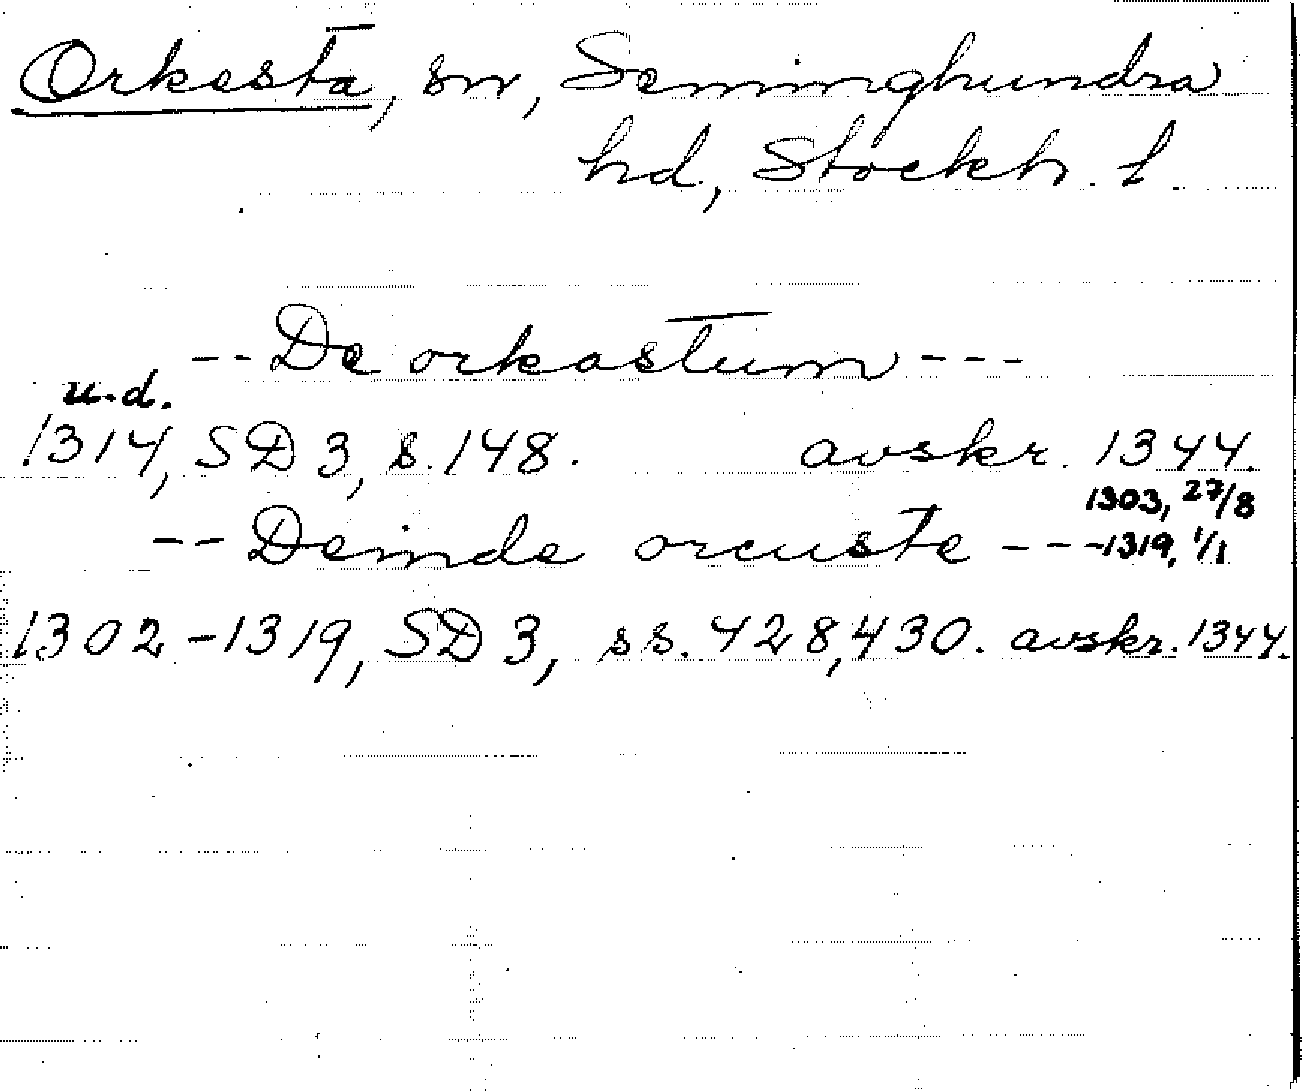 Orkesta, sn, Seminghundra
hd, Stockh. l.
-- De orkastum ---
u.d.
1314, SD 3, s. 148. avskr. 1344.
1303, 27/8
-- Deinde orcuste --- -1319, 1/1
1302-1319, SD 3, ss. 428, 430. avskr. 1344.